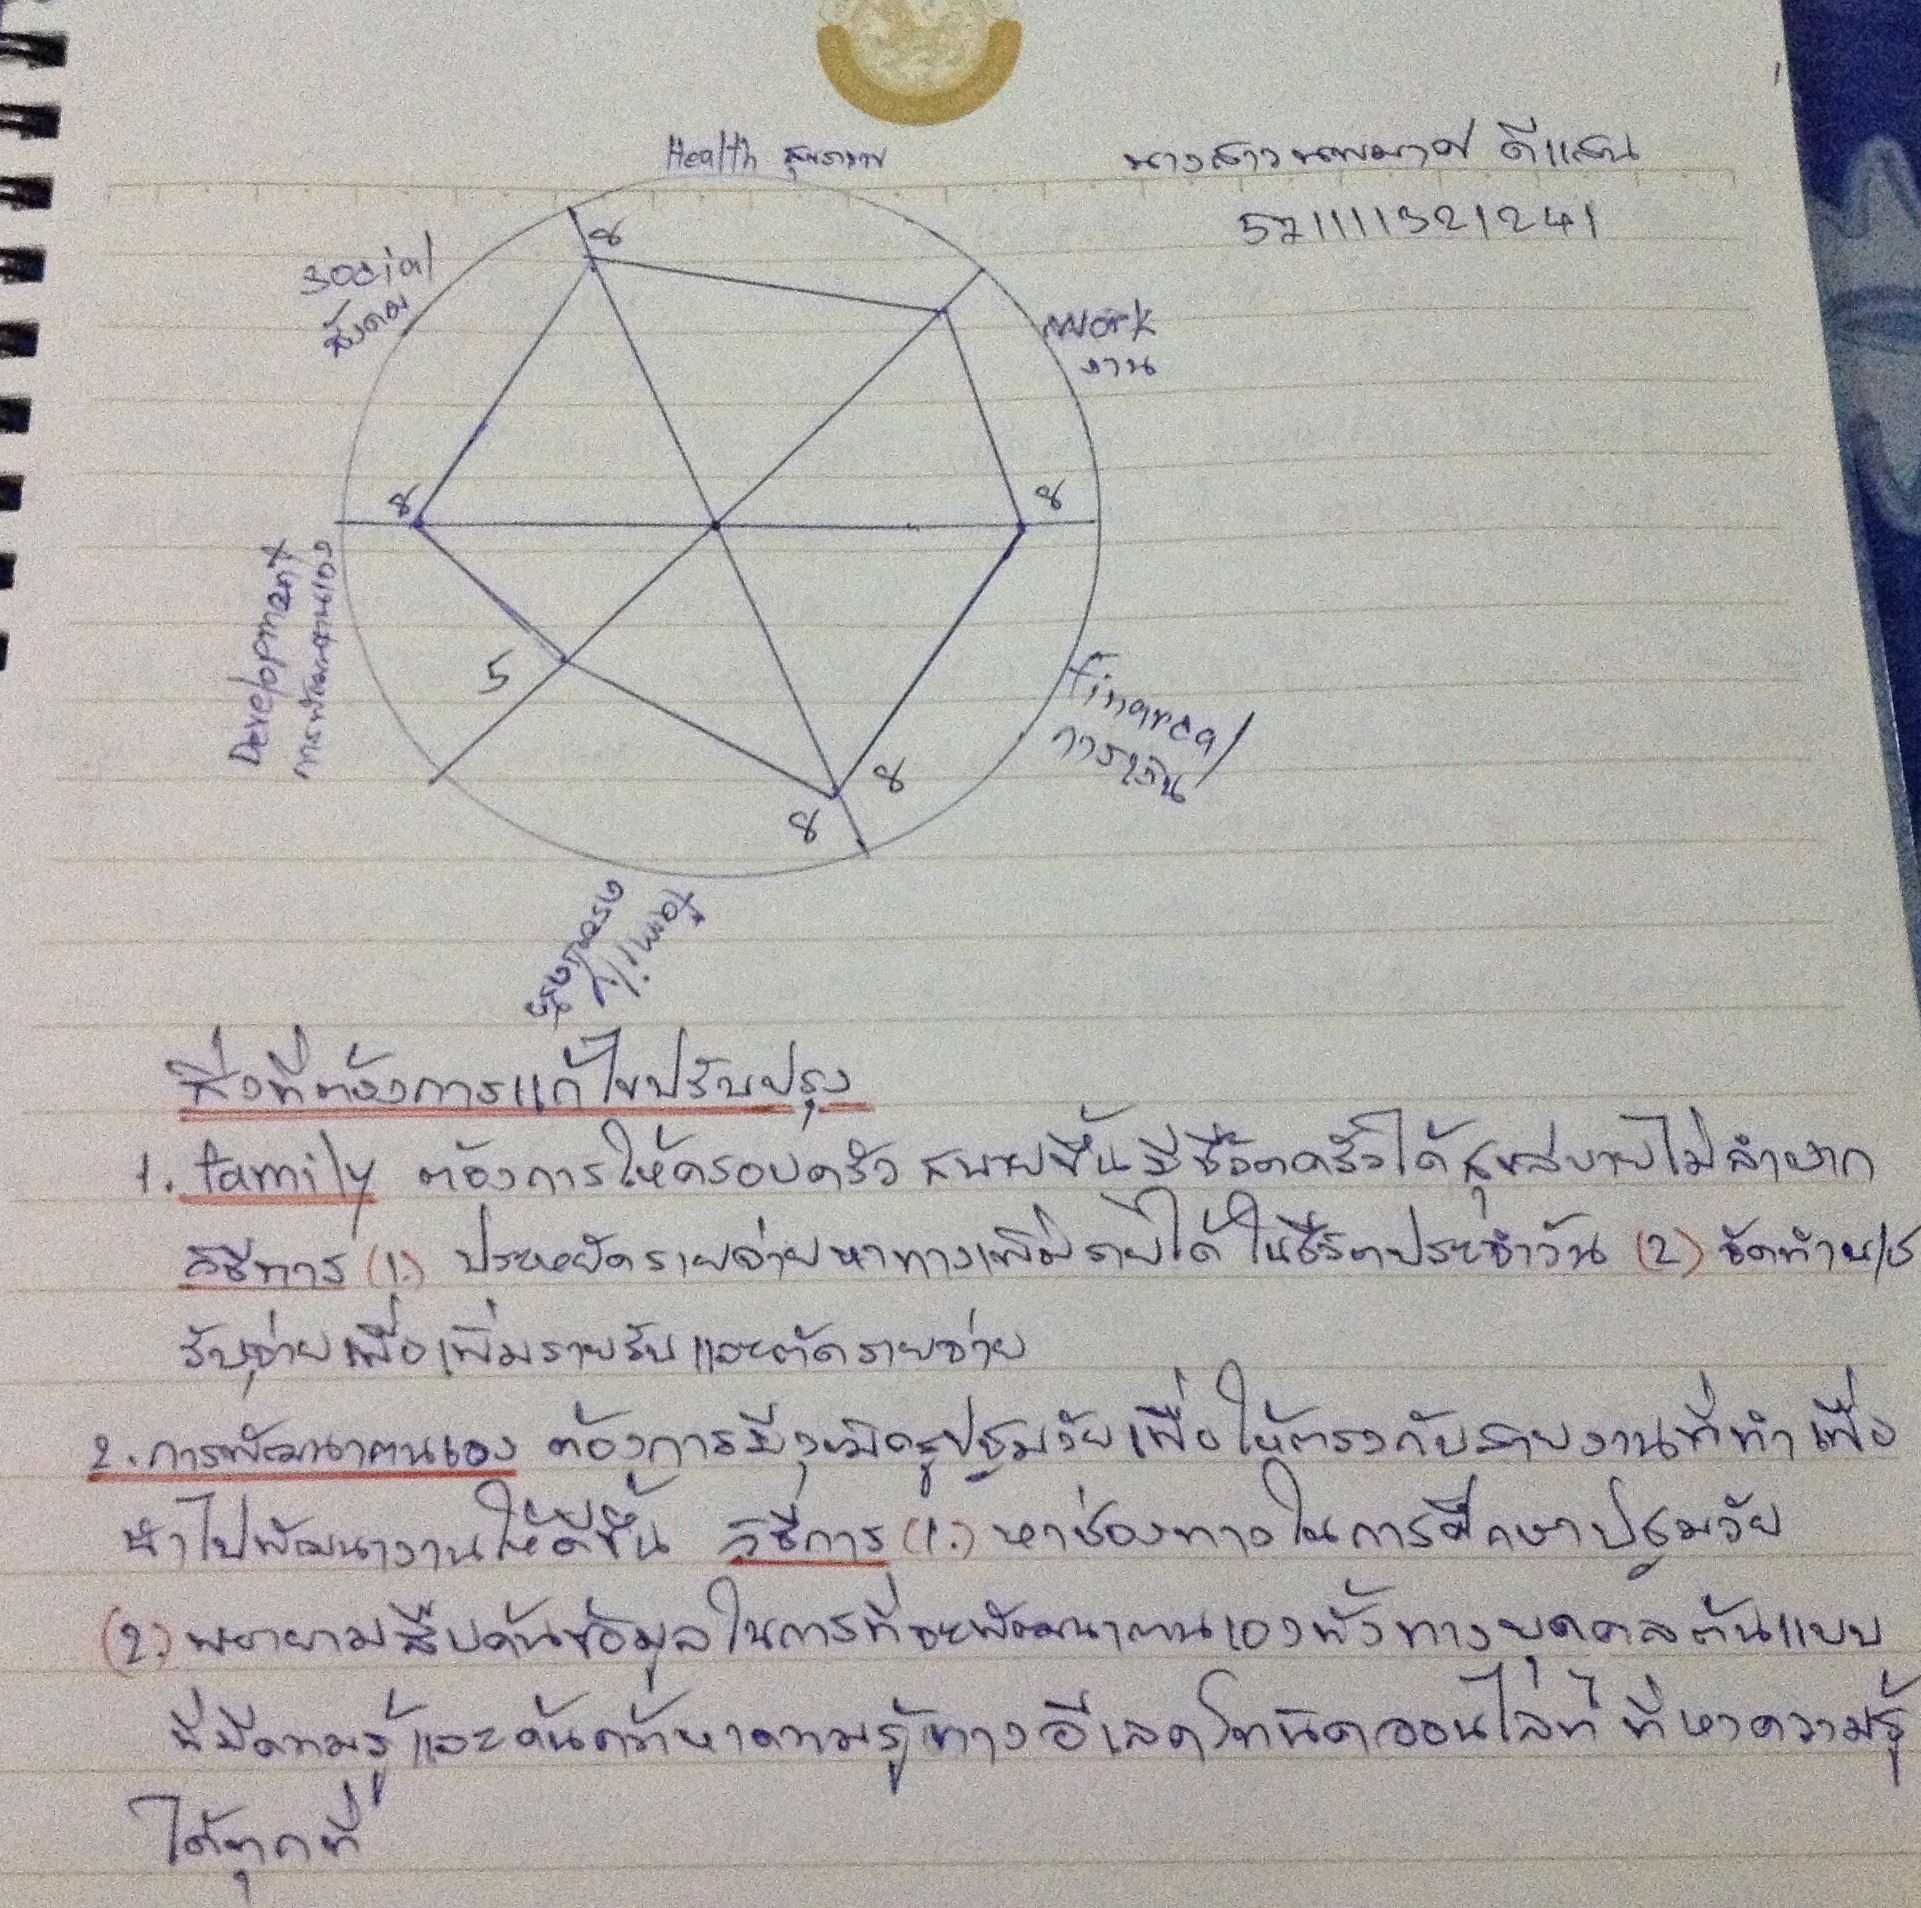 Health สุขภาพ
นางสาวนพมาศ ดีแสน
571111321241
Social
สังคม
work
งาน
8
8
8
5
8
8
Development
การพัฒนาตนเอง
financal
การเงิน
family
ครอบครัว
สิ่งที่ต้องการแก้ไขปรับปรุง
1. family ต้องการให้ครอบครัว สบายขึ้นมีชีวิตครัวได้สุขสบายไม่ลำบาก
วิธีการ (1.) ประหยัดรายจ่ายหาทางเพิ่มรายได้ในชีวิตประจำวัน (2) จัดทำบ/ช
รับจ่ายเพื่อเพิ่มรายรับและตัดรายจ่าย
2. การพัฒนาตนเอง ต้องการมีวุฒิครูปฐมวัยเพื่อให้ตรงกับสายงานที่ทำ เพื่อ
นำไปพัฒนางานให้ดีขึ้น วิธีการ (1.) หาช่องทางในการศึกษาปฐมวัย
(2.) พยายามสืบค้นข้อมูลในการที่จะพัฒนาตนเองทั้งทางบุคคลต้นแบบ
ที่มีความรู้และค้นคว้าหาความรู้ทางอีเลคโทนิคออนไลท์ ที่หาความรู้
ได้ทุกที่